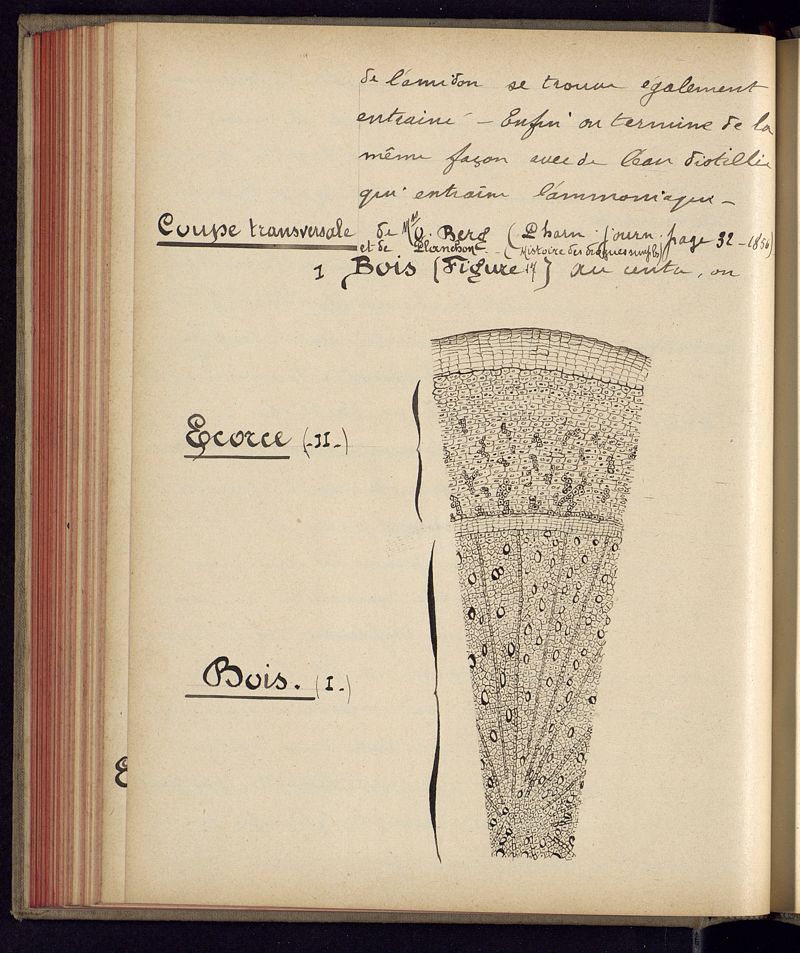 de l'amidon se trouve également
entrainé - Enfin on termine de la
même façon avec de l'eau distillée
qui entraîne l'ammoniaque -
Coupe transversale de Mrs O. Berg (Pharm. journ. page 32 - 1856)
et de Planchon - (Histoire des drogues simples)
1 Bois [Figure 17] au centre, on
Ecorce (-II-)
Bois. (I-)
E